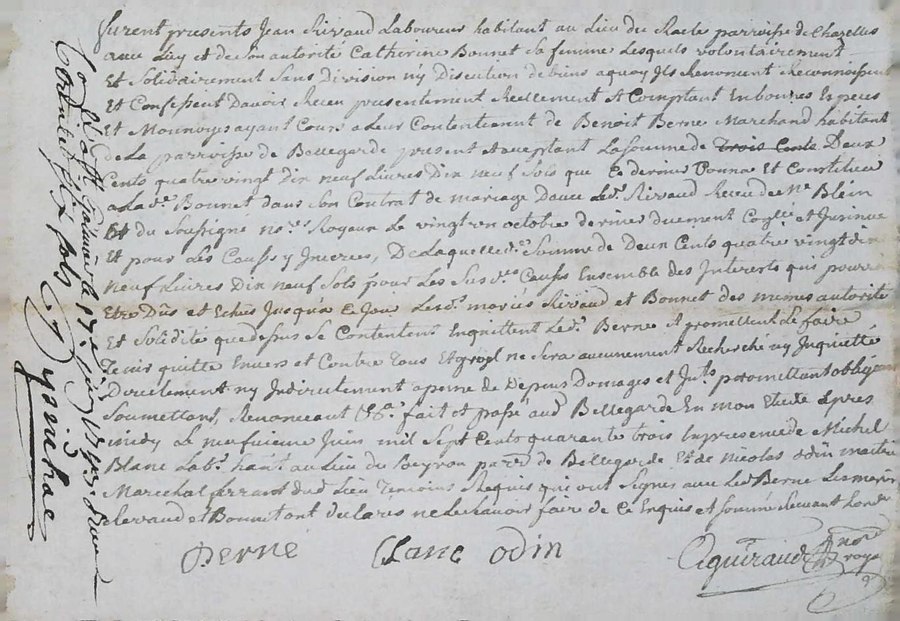 furent presents Jean Rivaud Laboureur habitant au Lieu du paroisse de Chazelles
avec Luy et de son autorité Catherine Bonnet sa femme Lesquels volontairement
Et Solidairement Sans division ny Discution de biens aquoy Ils Renoncent Reconnoissent
Et Confessent Davoir Receu presentement Reellement A Comptant En bonnes Especes
Et Monnoys ayant Cours a Leur Contentement de Benoit Berne Marchand habitant
de La parroisse de Bellegarde present Acceptant La Somme de trois Cents Deux
Cents quatre vingt Dix neuf Livres Dix neuf Sols que Ce dernier Donna Et Constitua
a Lad.e Bonnet dans Son Contrat de mariage Davec Led. Rivaud Receu de Me Blein
Et du Soussigné no.res Royaux Le vingt en octobre dernier duement et Insinué
Et pour Les Causes y Inserées, De Laquelle d.e Somme de Deux Cents quatre vingt dix
neuf Livres Dix neuf Sols pour Les Sus.es Causes Ensemble des Interets qui pourroient
Etre Dus et Echus Jusqua Ce Jour Lesd. mariés Rivaud et Bonnet des mêmes autorité
Et Solidité que dessus Se Contentent Enquittent Led. Berne A promettent Le faire
Tenir quitte Envers et Contre Tous Et qu'il ne Sera aucunement Recherché ny Inquietté
Directement ny Indirectement a peine de Depens Domages et Int.ts promettant obligeant
Soumettant, Renonceant &a. fait et passé aud. Bellegarde En mon Etude apres
midy Le neufvieme Juin mil Sept Cents quarante trois En presence de Michel
Blanc Lab.r hab.t au Lieu du Peyron de Bellegarde Et de Nicolas Odin maitre
Marechal dud. Lieu Temoins Requis qui ont Signés avec Led. Berne Les mariés
Rivaud et Bonnet ont declarés ne Le Scavoir faire de Ce Enquis et Sommés Suivant Lord.ce
Berne Blanc odin
Aguiraud no.re royal
le 17e juin 1743. Receu
sols